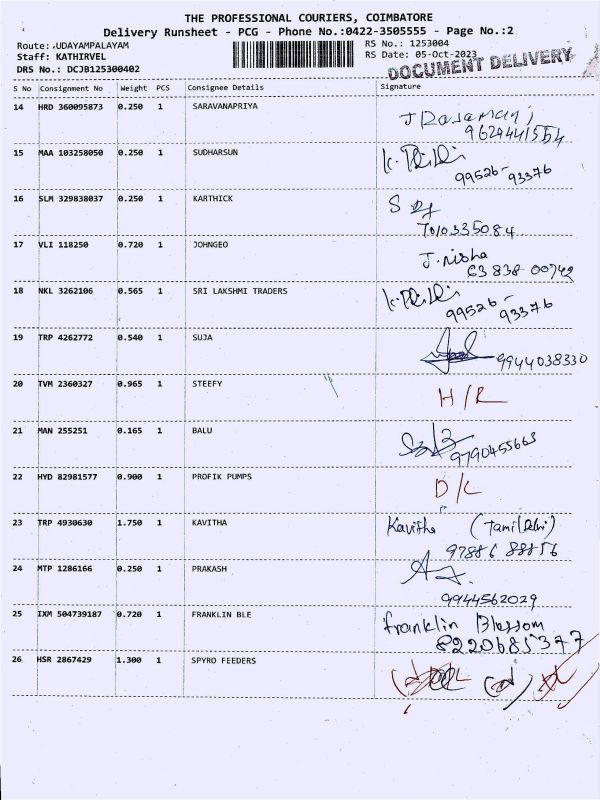 THE PROFESSIONAL COURIERS, COIMBATORE
Delivery Runsheet - PCG - Phone No.:0422-3505555 - Page No.:2
Route: UDAYAMPALAYAM
Staff: KATHIRVEL
DRS No.: DCJB125300402
RS No.: 1253004
RS Date: 05-Oct-2023
DOCUMENT DELIVERY
S No Consignment No Weight PCS Consignee Details Signature
14 HRD 360095873 0.250 1 SARAVANAPRIYA
J Rajamani
9624441554
15 MAA 103258050 0.250 1 SUDHARSUN
99526-93376
16 SLM 329838037 0.250 1 KARTHICK
7010335084
17 VLI 118250 0.720 1 JOHNGEO
J. nisha
63 838 00742
18 NKL 3262106 0.565 1 SRI LAKSHMI TRADERS
99526-
93376
19 TRP 4262772 0.540 1 SUJA
9944038330
20 TVM 2360327 0.965 1 STEEFY
H/R
21 MAN 255251 0.165 1 BALU
9790455663
22 HYD 82981577 0.900 1 PROFIK PUMPS
D/L
23 TRP 4930630 1.750 1 KAVITHA
Kavitha (Tamil Selvi)
97886 88856
24 MTP 1286166 0.250 1 PRAKASH
9944562029
25 IXM 504739187 0.720 1 FRANKLIN BLE
franklin Blessom
8220685377
26 HSR 2867429 1.300 1 SPYRO FEEDERS